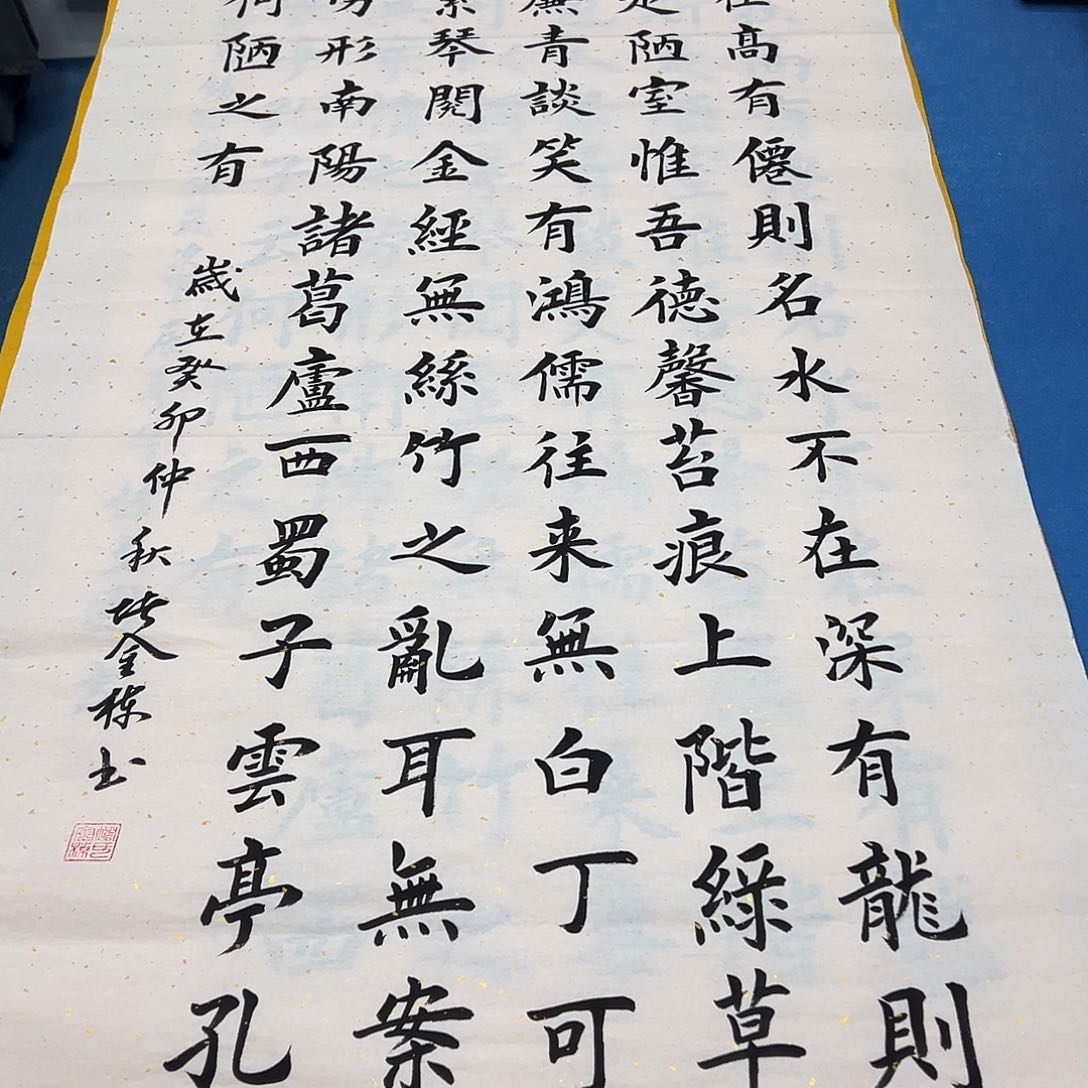 在髙有僊則名水不在深有龍則
是陋室惟吾徳馨苔痕上階綠草
簾青談笑有鴻儒往来無白丁可
素琴閱金經無絲竹之亂耳無案
勞形南陽諸葛廬西蜀子雲亭孔
何陋之有
歲在癸卯仲秋金棟书